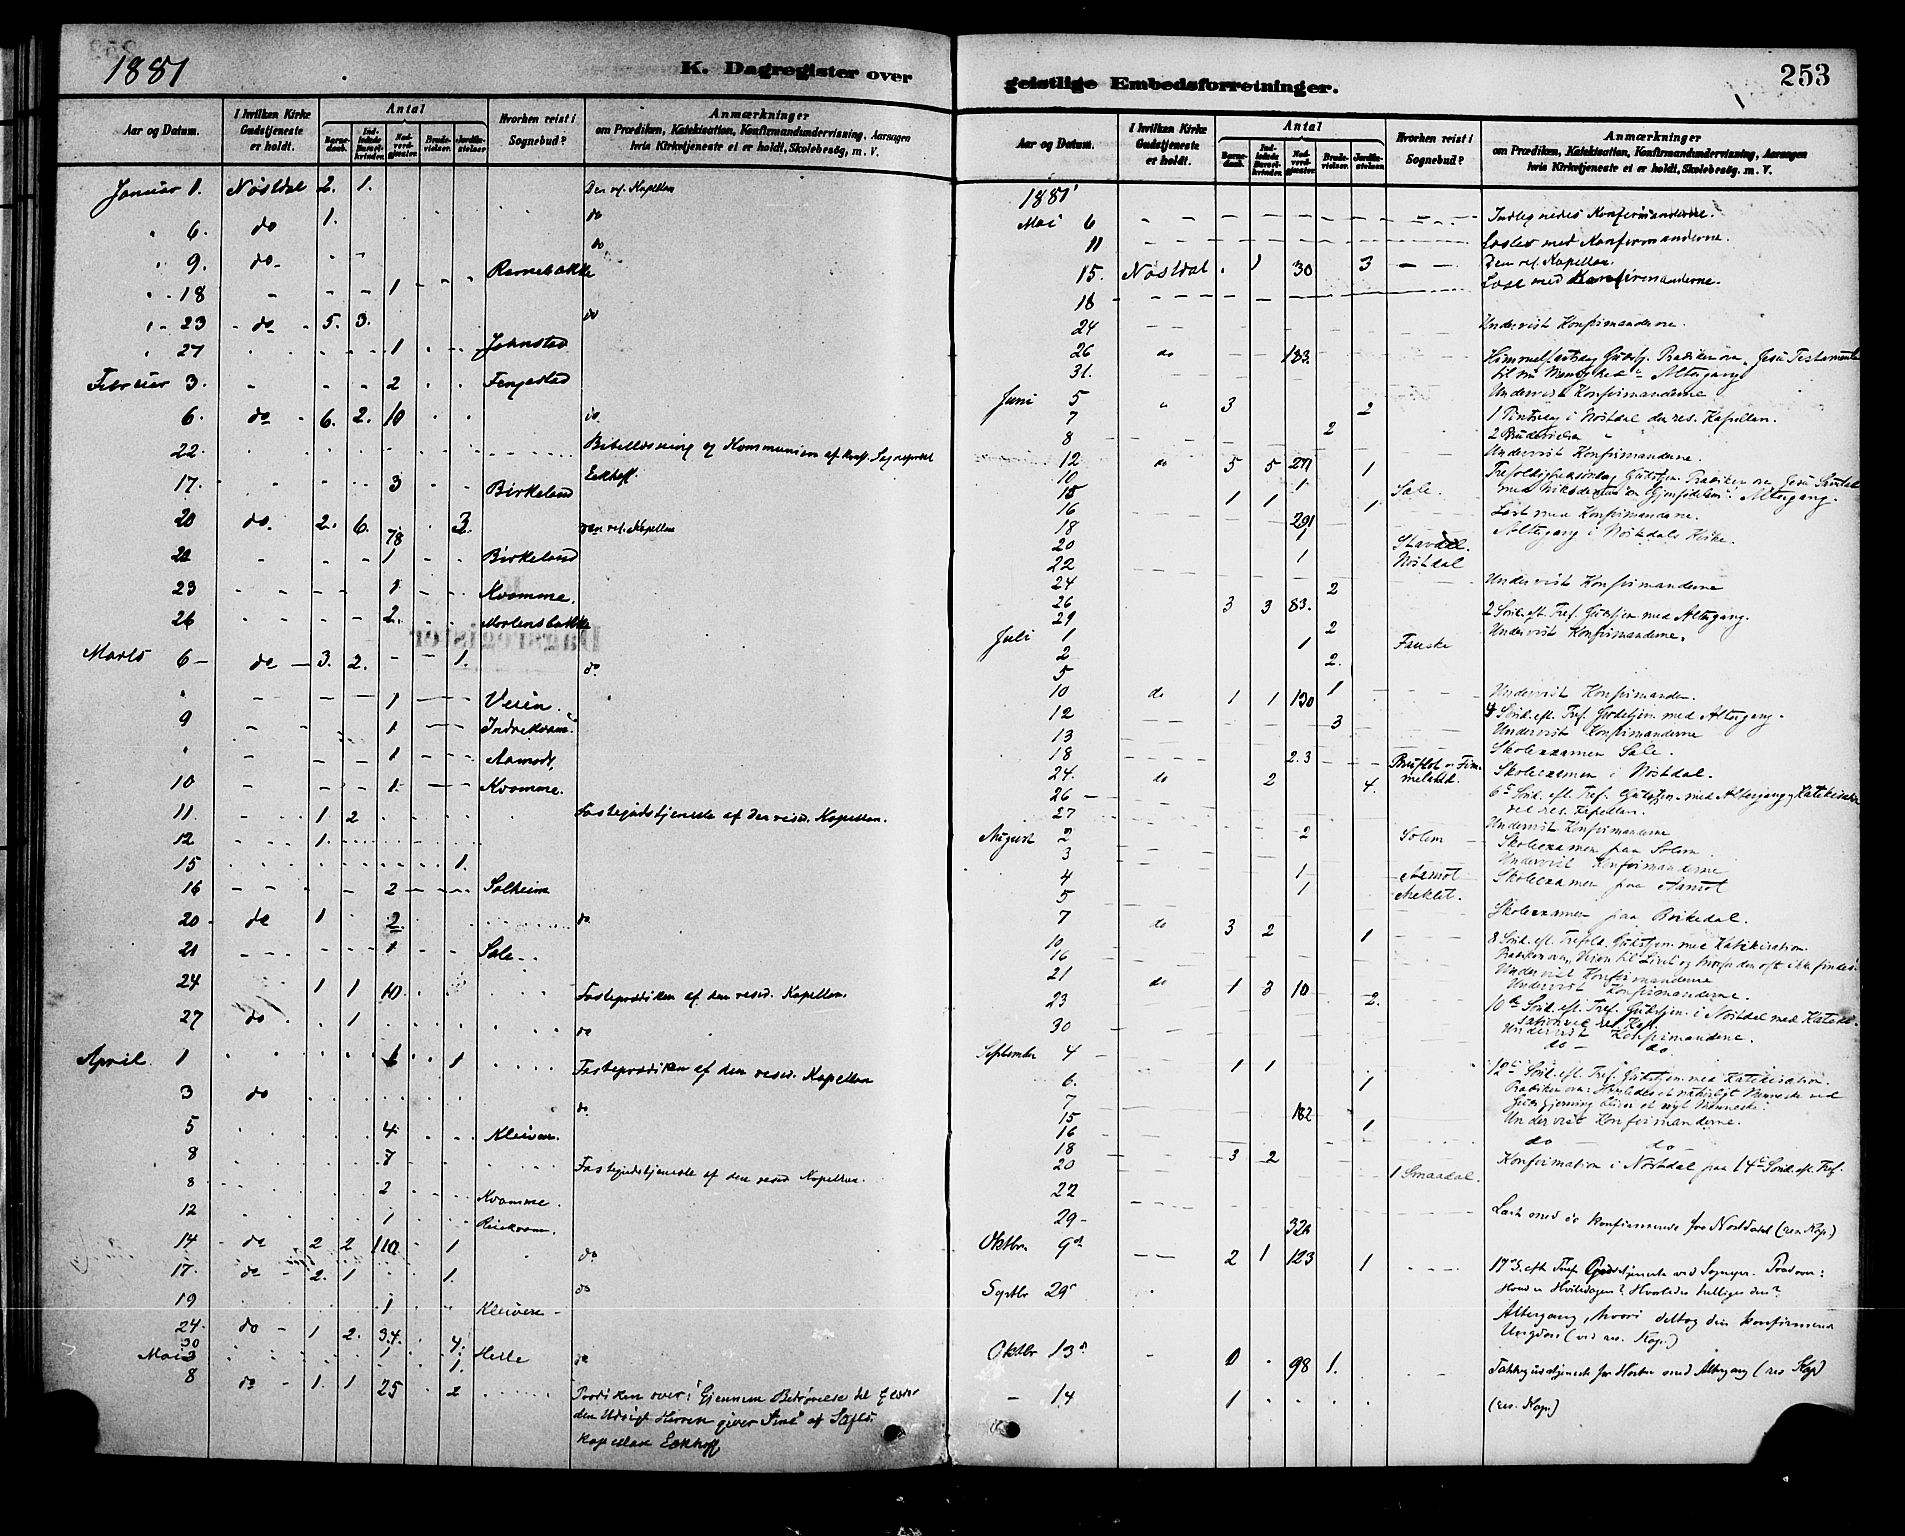 1881
K. Dagregister over
Aar og Datum. I hvilken Kirke Gudstjeneste er holdt. Antal Barnedaab. Indledede Barselkvinder. Nadverdgjester. Brudevielser. Jordfæstelser Hvorhen reist i Sognebud? Anmærkninger om Prædiken, Katekisation, Konfirmandundervisning, Aarsagen hvis Kirketjeneste ei er holdt, Skolebesøg, m. V.
Januar 1. Nøstdal 2. 1. Den res. Kapellan
6. do 1. do
9. do do
18 1 Ravnebakke
23 do 5. 3. do
27 1 Johnstad
Februar 3. 2 Fengestad
6. do 6. 2. 10 do.
22. Bibellæsning og Kommunion af
Eckhoff.
17. 3 Birkeland
20 do. 2. 6. 78 3. den res. Kapellan
1 Birkeland
23 1 Kvamme.
26 2. Mortensbakke
Marts 6 do 3. 2. 1. do.
1 Veien.
9 1 Indrekvam.
1 Aamodt,
10 1 Kvamme.
11 1 2 Fastegudstjeneste af den resid. Kapellan.
12 1.
15 1.
16 2 Solheim
20 do 1 2. do.
21 1 Sale
24 1 1 10. Fasteprædiken af den resid. Kapellan.
27 do 1 do
April 1 1 Fasteprædiken af den resid. Kapellan
3 do do.
5 4. Kleiven.
8 7 Fastegudstjeneste af den resid. Kapellan.
8 2 Kvamme.
12 1
14 do 2 2 110 1 do
17. do 2. 1 1. do
19 1 Kleiven
24. do 1 2. 34. 4.
30 1 Helle do
Mai 3 1.
8 do 1. 1 25 2 Prædiken over: "Gjennem Bedrøvelse til Glæde
den Udsigt Herren giver Sine" af
Kapellan Eckhoff
geistlige Embedsforretninger.
253
Aar og Datum. I hvilken Kirke Gudstjeneste er holdt. Antal Barnedaab. Indledede Barselkvinder. Nadverdgjester. Brudevielser. Jordfæstelser. Hvorhen reist i Sognebud? Anmærkninger om Prædiken, Katekisation, Konfirmandundervisning, Aarsagen hvis Kirketjeneste ei er holdt, Skolebesøg, m. V.
1881
Mai 6 Indtegnedes Konfirmanderne.
11 Læstes med Konfirmanderne.
15. Nøstdal 1 30 3 Den res. Kapellan.
18 Læst med Konfirmanderne.
24 Undervist Konfirmanderne.
26 do 183. Himmelfartsdag Gudstj. Prædiken om "Jesu Testamente
31. til sin Menighed" Altergang
Undervist Konfirmanderne
Juni 5 3 2 1 Pintsedag i Nøstdal den res. Kapellan.
7 2 2 Brudevielser
8 Undervist Konfirmanderne.
12 do 5 5 271 1 Trefoldighedssøndag Gudstjen. Prædiken om Jesu Samtale
10 1 Sale. med Nikodemus om Gjenfødelsen. Altergang.
15 1 1 1 Læst med Konfirmanderne.
16 291 Altergang i Nøstdals Kirke.
18 1
20 Stavdal.
22 1 Nøstdal
24 2 Undervist Konfirmanderne
26 3 3 83. 2 Sønd. eft. Tref. Gudstjen med Altergang.
29 2 Undervist Konfirmanderne.
Juli 1 1 Fauske
2 2.
5 1 Undervist Konfirmander.
10 do 1 1 130 4 Sønd. eft. Tref. Gudstjen. med Altergang.
12 3 Undervist Konfirmanderne
13 Skoleexamen Sale.
18 2.3 Skoleexamen i Nøstdal.
24. do 2 4. 6te Sønd. eft. Tref. Gudstjen. med Altergang og Katekisation
26 ved res. Kapellan.
27 Undervist Konfirmanderne
August 2 2 Solem Skoleexamen paa Solem.
3 Undervist Konfirmanderne
4 1 Aamot Skoleexamen paa Aamot
5 1
7 do 3 2 1 Skoleexamen paa Birkedal.
10 8 Sønd. eft. Trefold. Gudstjen. med Katekisation.
16 Prædiken om "Veien til Livet og hvorfor den oft ikke findes"
21 do 1 3 10 2. Undervist Konfirmanderne
23 Undervist Konfirmanderne.
10de Sønd. eft. Tref. Gudstjen. i Nøstdal med Kateki-
sation ved res. Kap.
30 Undervist Konfirmanderne.
do do.
September 4 1 1 12te Sønd. eft. Tref. Gudstjen. med Katekisation.
6. 1 Prædiken om: Hvorledes et naturligt Menneske ved
7 182 Guds Gjerning bliver et nyt Menneske.
15 1 Undervist Konfirmanderne.
16 do do
18 3 2 Konfirmation i Nøstdal paa 14de Sønd. eft. Tref.
20 1 Smaadal.
22
29 32 Læst med de konfirmerede fra Nøstdal (res Kap)
Oktbr. 9de 2 1 123 1 17 S. eft Tref Gudstjeneste ved Sognepr. Præd. over:
Septbr 29 Hvad er Hviledagen? Hvorledes helliges den?
Altergang, hvori deltog den konfirmerede
Ungdom (ved res. Kap.)
Oktbr 13de 0 98 1. Takkegudstjeneste for Høsten med Altergang (res Kap)
14 1 (res. Kap.)